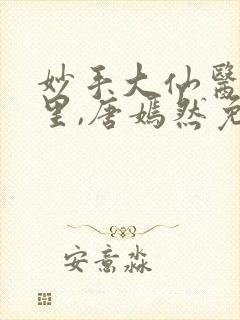 妙手大仙醫
里,唐嫣然免
安意淼